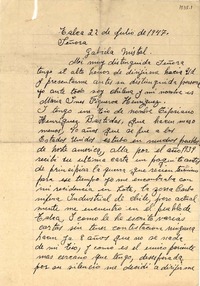 Talca 22 de julio de 1947.
Señora
Gabriela Mistral.
Mi muy distinguida Señora
tengo el alto honor de dirijirme hacia Ud
y presentarme ante su distinguida persona
yo ante todo soy chilena y mi nombre es
María Inés Figueroa Henríquez.
I tengo un tío de nombre Cipriano
Henríquez Bastidas, que hacen mas o
menos, 40 años que se fue a los
Estados Unidos, estuvo en
de norte america, alla por el año 1939
recibi su ultima carta en
de principio la guerra que
para ese tiempo yo me encontraba con
mi residencia en Lota, la gran
Industrial de chile, pero actual
mente me encuentro en el pueblo de
Talca, I como le he escrito varias
cartas sin tener contestacion ninguna
hacen 7 a 8 años que no se nada
de mi tio, I como es el unico pariente
mas cercano que tengo, desesperada
por su silencio me decidi a dirijirme